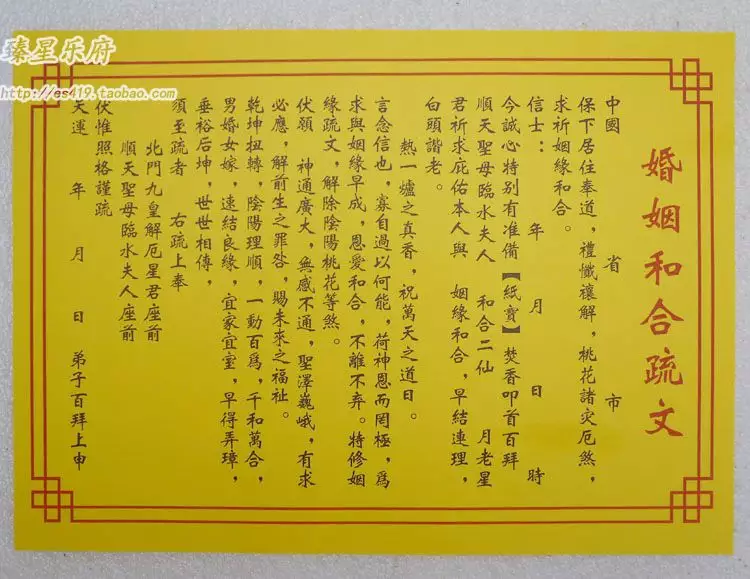 臻星乐府
http://es419.taobao.com
婚姻和合疏文
中國 省 市
保下居住奉道，禮懺禳解，桃花諸灾厄煞，
求祈姻緣和合。
信士： 年 月 日 時
今誠心特别有准備【紙寶】焚香叩首百拜
順天聖母臨水夫人 和合二仙 月老星
君祈求庇佑本人與 姻緣和合，早結連理，
白頭諧老。
熱一爐之真香，祝萬天之道日。
言念信也，寡自過以何能，荷神恩而罔極，爲
求與姻緣早成，恩愛和合，不離不弃。特修姻
緣疏文，解除陰陽桃花等煞。
伏願 神通廣大，無感不通，聖澤巍峨，有求
必應，解前生之罪咎，賜未來之福祉。
乾坤扭轉，陰陽理順，一動百爲，千和萬合，
男婚女嫁，速结良緣，宜家宜室，早得弄璋，
垂裕后坤，世世相傳，
須至疏者 右疏上奉
北門九皇解厄星君座前
順天聖母臨水夫人座前
伏惟照格謹疏
天運 年 月 日 弟子百拜上申